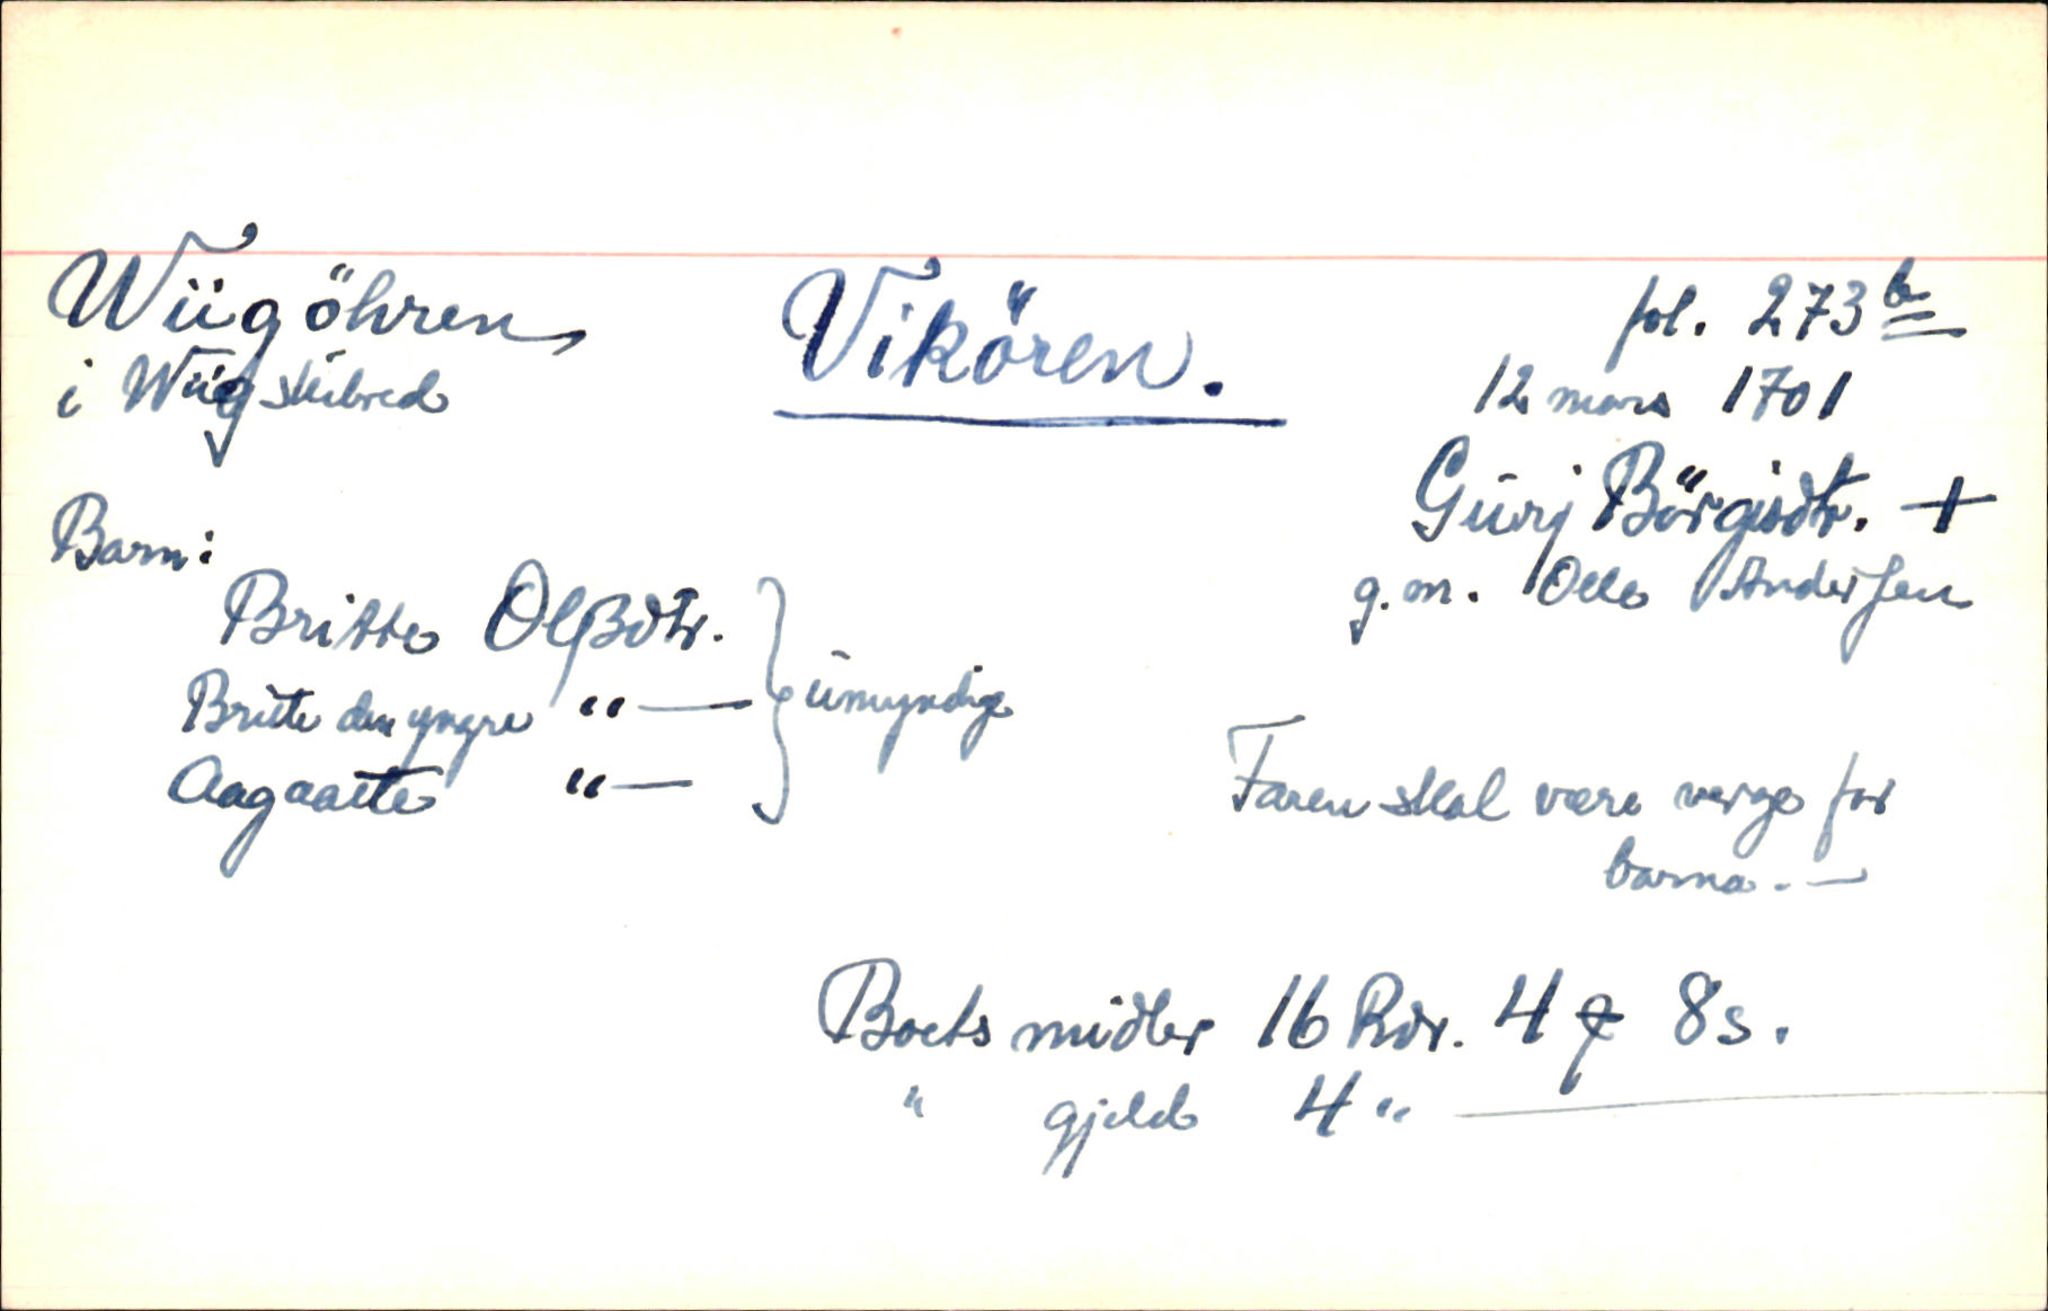 Wiigöhren
i Wiigskibred
Vikören.
fol. 273 b
12 mars 1701
Gurj Börgisdtr. +
g.m. Olle Andersen
Barn:
Britte Olßdtr.
Britte den yngre " —
Aagaatte " —
} umyndige
Faren skal være verge for
barna. —
Boets midler 16 Rdr. 4 ʒ 8 s.
" gjeld 4 " —